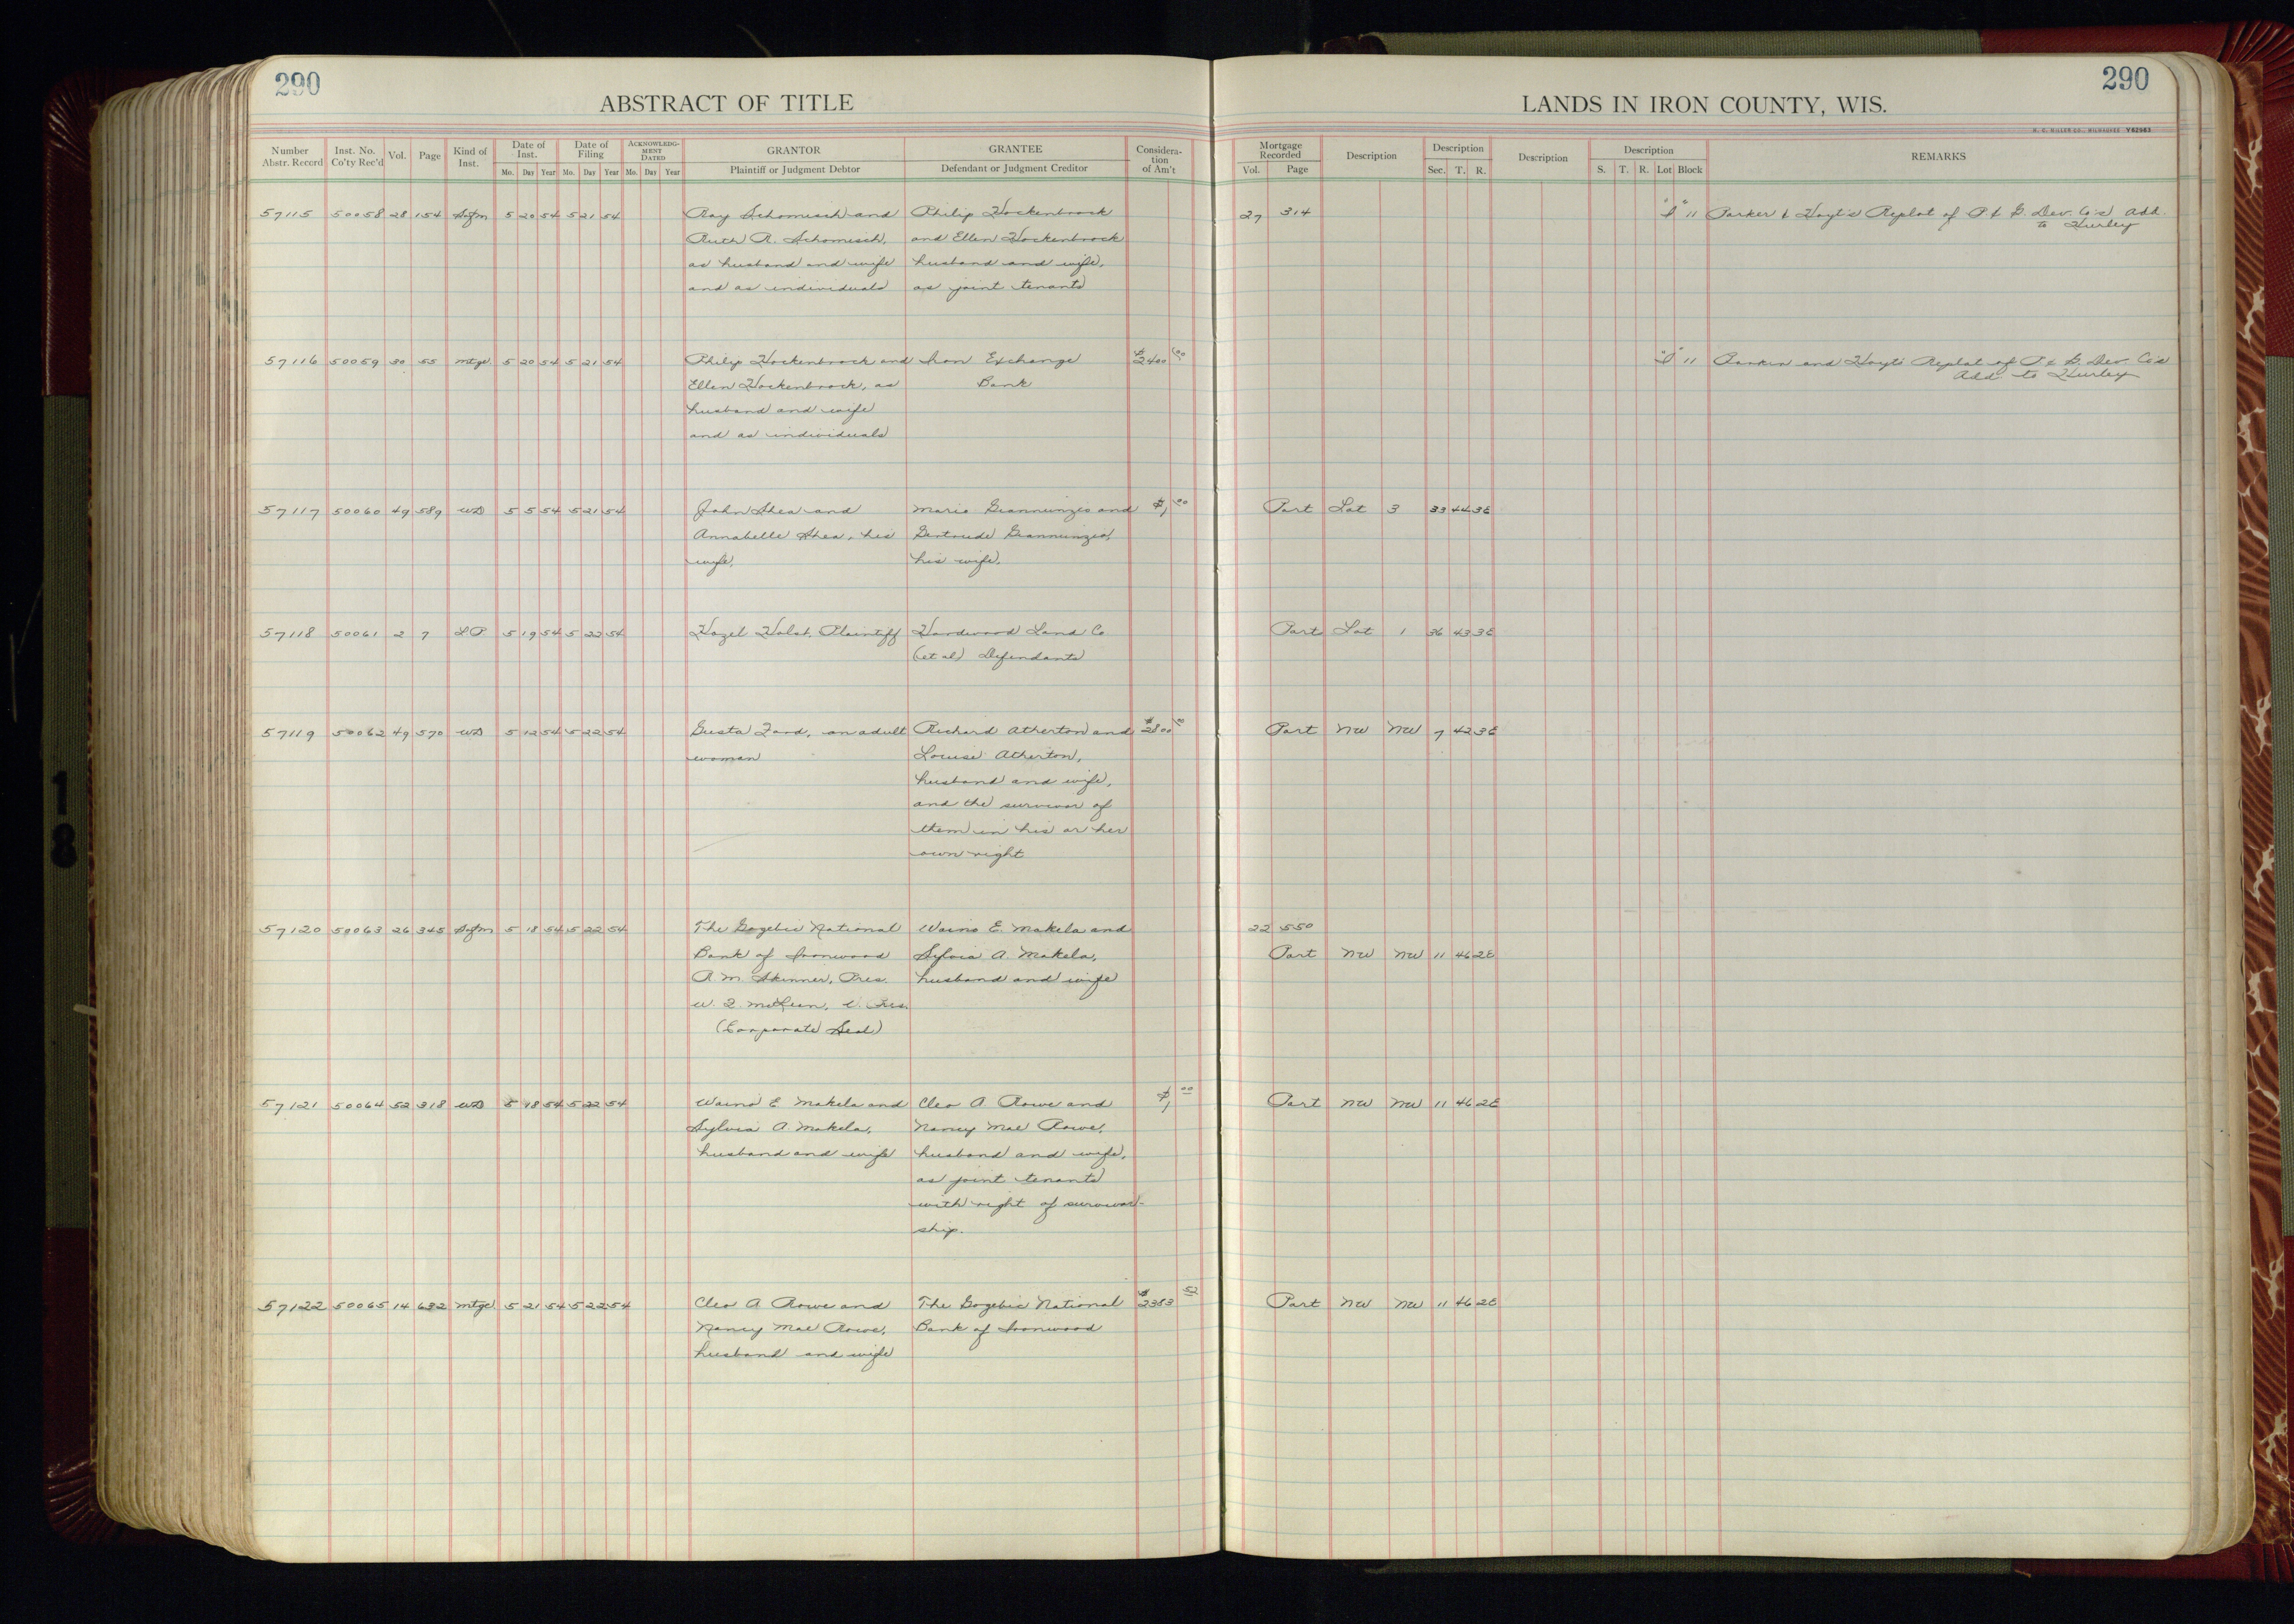 290
ABSTRACT OF TITLE
290
LANDS IN IRON COUNTY, WIS.
H. C. MILLER CO., MILWAUKEE Y82983
Number Abstr. Record | Inst. No. Co'ty Rec'd | Vol. | Page | Kind of Inst. | Date of Inst. Mo. Day Year | Date of Filing Mo. Day Year | ACKNOWLEDGMENT DATED Mo. Day Year | GRANTOR Plaintiff or Judgment Debtor | GRANTEE Defendant or Judgment Creditor | Consideration of Am't | Mortgage Recorded Vol. Page | Description | Description Sec. T. R. | Description | Description S. T. R. Lot Block | REMARKS
57115 50058 28 154 Sofm 5 20 54 5 21 54 Ray Schomisch and Philip Hockenbrock 27 314 11 Parker & Hoyt's Replat of P. & G. Dev. Co's Add.
to Hurley
Ruth R. Schomisch, and Ellen Hockenbrock
as husband and wife husband and wife,
and as individuals as joint tenants
57116 50059 30 55 Mtge 5 20 54 5 21 54 Philip Hockenbrock and Iron Exchange $2400 00 11 and Hoyt's Replat of P & G. Dev. Co's
Add to Hurley
Ellen Hockenbrock, as Bank
husband and wife
and as individuals
57117 50060 49 589 WD 5 5 54 5 21 54 John Shea and Mario Giannunzio and $1 00 Part Lot 3 33 44 3E
Annabelle Shea, his Gertrude Giannunzio,
wife. his wife.
57118 50061 2 7 LP 5 19 54 5 22 54 Hazel Holst, Plaintiff Hardwood Land Co Part Lot 1 36 43 3E
(et al) Defendants
57119 50062 49 570 WD 5 12 54 5 22 54 Gusta Zard, an adult Richard Atherton and $2800 00 Part NW NW 7 42 3E
woman Louise Atherton,
husband and wife,
and the survivor of
them in his or her
own right
57120 50063 26 345 Sofm 5 18 54 5 22 54 The Gogebic National Waino E. Makela and 22 550
Bank of Ironwood Sylvia A. Makela, Part NW NW 11 46 2E
R. M. Skinner, Pres. husband and wife
V. Pres.
(Corporate Seal)
57121 50064 52 318 WD 5 18 54 5 22 54 Waino E Makela and Cleo A. Rowe and $1 00 Part NW NW 11 46 2E
Sylvia A. Makela, Nancy Mae Rowe,
husband and wife husband and wife,
as joint tenants
with right of survivor-
ship.
57122 50065 14 632 Mtge 5 21 54 5 22 54 Cleo A Rowe and The Gogebic National $2383 52 Part NW NW 11 46 2E
Nancy Mae Rowe, Bank of Ironwood
husband and wife
18